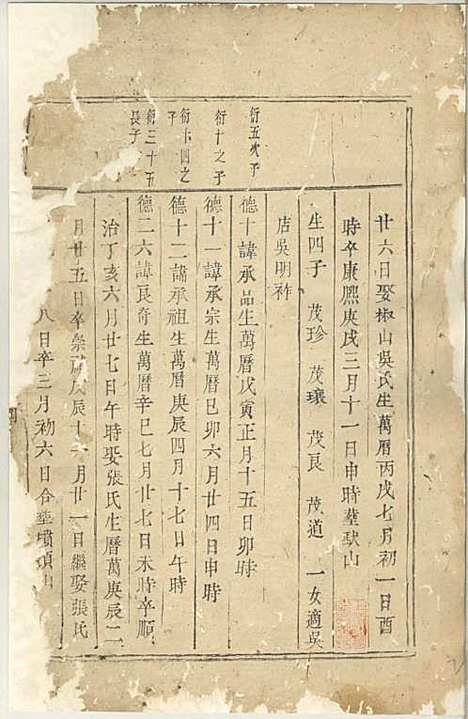 廿六日娶椒山吳氏生萬曆丙戌七月初一日酉
時卒康熙庚戌三月十一日申時葬狀山
生四子 茂珍 茂瓌 茂良 茂道 一女適吳
店吳明祚
衍五次子
德十諱承品生萬曆戊寅正月十五日卯時
衍十之子
德十一諱承宗生萬曆己卯六月廿四日申時
衍十四之
子
德十二諱承祖生萬曆庚辰四月十七日午時
衍三十五
長子
德二六諱良奇生萬曆辛巳七月廿七日未時卒順
治丁亥六月廿七日午時娶張氏生曆萬庚辰二
月廿五日卒崇禎戊辰十月廿一日繼娶張氏
八日卒三月初六日合葬墳頭山